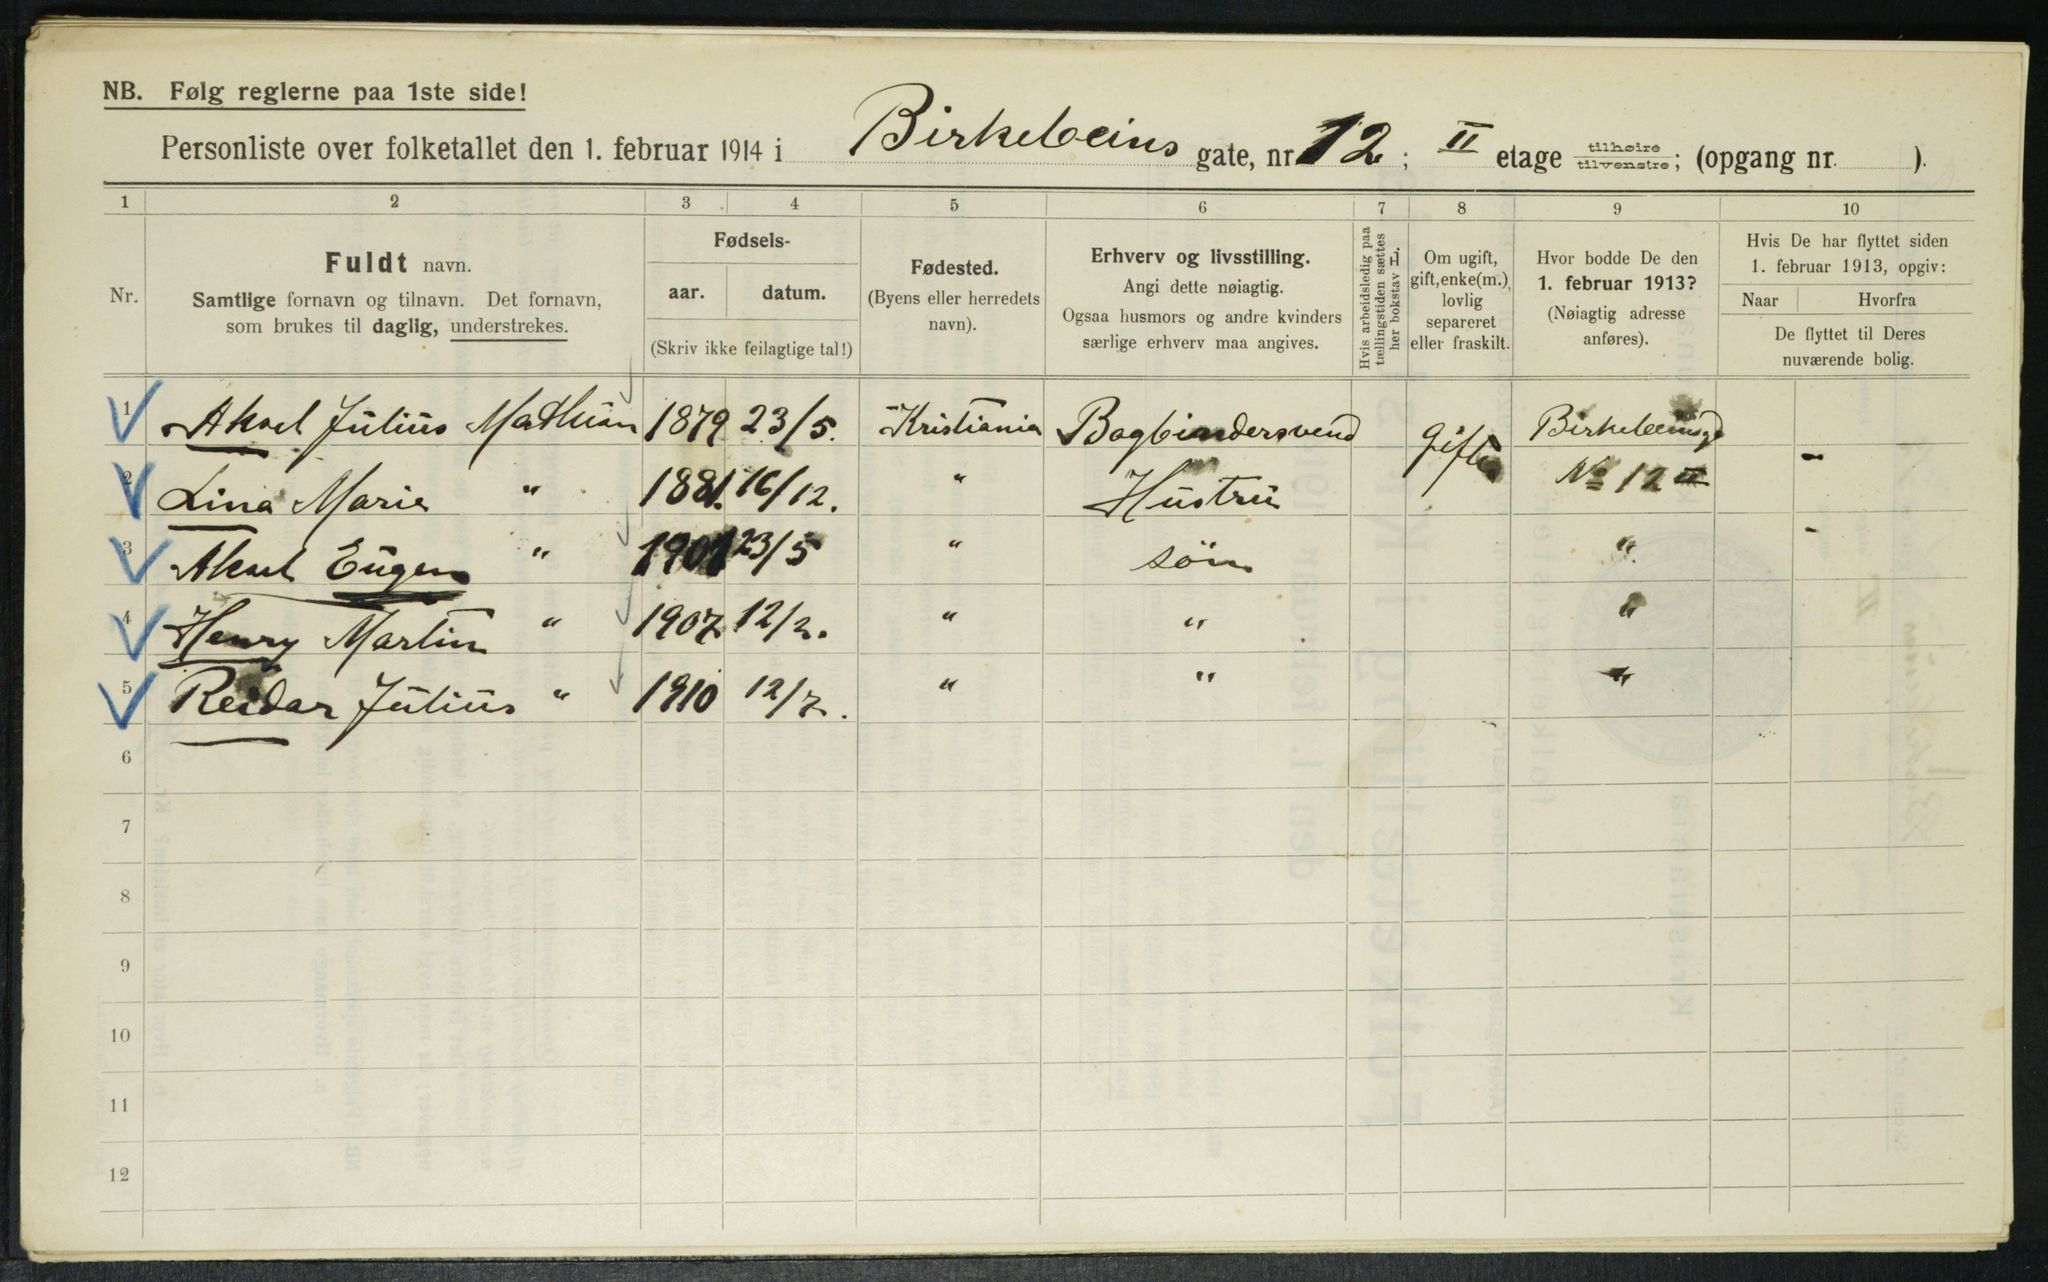 NB. Følg reglerne paa 1ste side!
Personliste over folketallet den 1. februar 1914 i Birkebeins gate, nr. 12; II etage tilhøire tilvenstre; (opgang nr. ).
1 2 3 4 5 6 7 8 9 10
Nr.
Fuldt navn.
Samtlige fornavn og tilnavn. Det fornavn,
som brukes til daglig, understrekes.
Fødsels-
aar. datum.
(Skriv ikke feilagtige tal!)
Fødested.
(Byens eller herredets
navn).
Erhverv og livsstilling.
Angi dette nøiagtig.
Ogsaa husmors og andre kvinders
særlige erhverv maa angives.
Hvis arbeidsledig paa
tællingstiden sættes
her bokstav L.
Om ugift,
gift, enke(m.),
lovlig
separeret
eller fraskilt.
Hvor bodde De den
1. februar 1913?
(Nøiagtig adresse
anføres).
Hvis De har flyttet siden
1. februar 1913, opgiv:
Naar Hvorfra
De flyttet til Deres
nuværende bolig.
1 Aksel Julius 1879 23/5. Kristiania Bogbindersvend Gifte Birkebeinsgd -
2 Lina Marie " 1881. 16/12. " Hustru No 12 II
3 Aksel Eugen " 23/5 " søn " -
4 Henry Martin " 1907 12/2. " " "
5 Reidar Julius " 1910 12/7. " " "
6
7
8
9
10
11
12